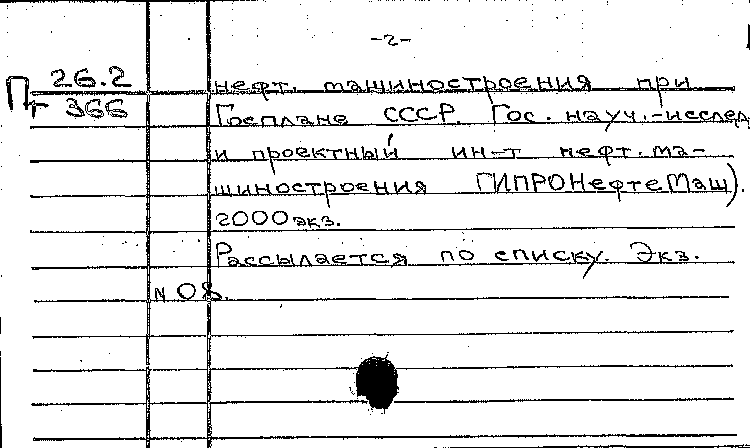 -2-
Пг 26.2 нефт. машиностроения при
366 Госплане СССР. Гос. науч.-исслед.
и проектный ин-т нефт. ма-
шиностроения ГИПРОНефтеМаш).
2000 экз.
Рассылается по списку. Экз.
N 08.